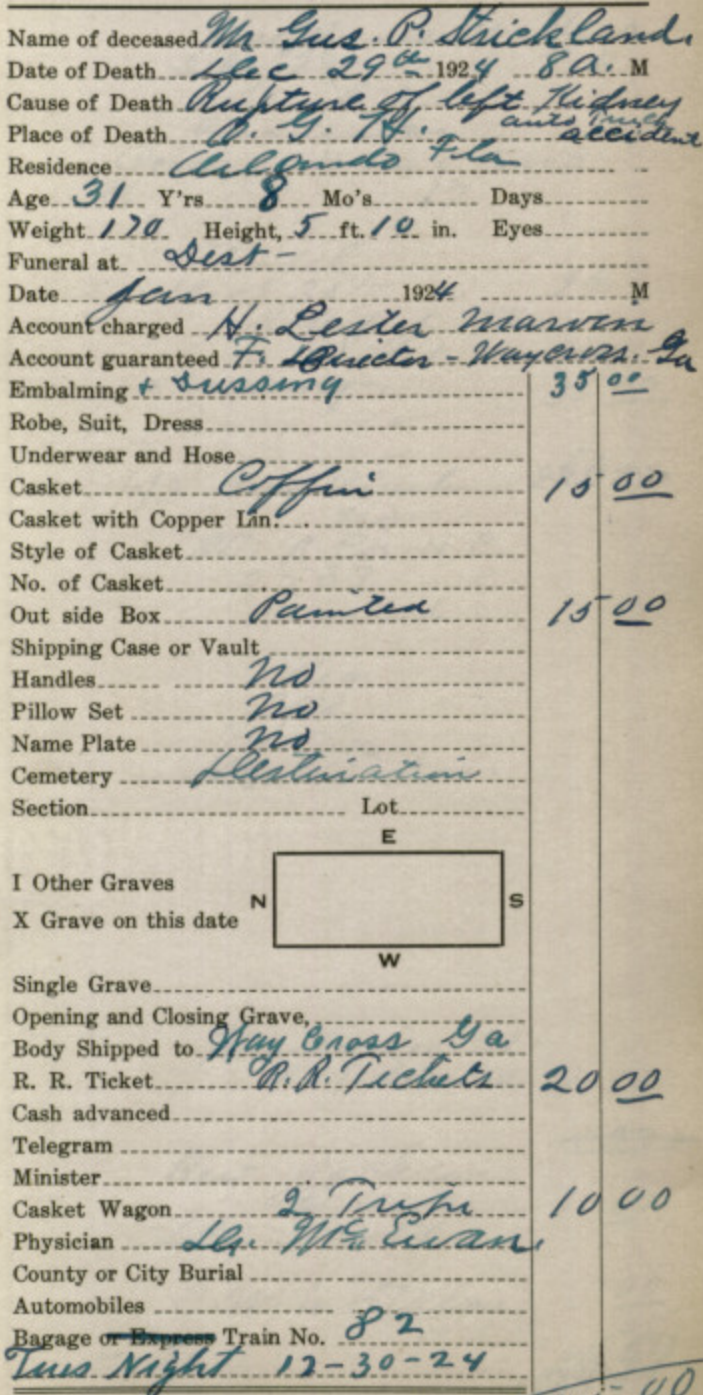 Name of deceased Mr Gus. P. Strickland.
Date of Death Dec 29th 1924 8 a. M
Cause of Death Rupture of left Kidney
auto Truck
Place of Death O. G. H. accident
Residence Orlando Fla
Age 31 Y'rs 8 Mo's Days
Weight 170 Height, 5 ft. 10 in. Eyes
Funeral at Dest-
Date Jan 1924 M
Account charged H. Lester Marvin
Account guaranteed F. Director - Waycross. Ga
Embalming + Dressing 35 00
Robe, Suit, Dress
Underwear and Hose
Casket Coffin 15 00
Casket with Copper Lin.
Style of Casket
No. of Casket
Out side Box Painted 15 00
Shipping Case or Vault
Handles No
Pillow Set No
Name Plate No
Cemetery Destination
Section Lot
E
I Other Graves
N S
X Grave on this date
W
Single Grave
Opening and Closing Grave,
Body Shipped to Way Cross Ga
R. R. Ticket R.R. Tickets 20 00
Cash advanced
Telegram
Minister
Casket Wagon 2 Trips 10 00
Physician Dr. McEwan.
County or City Burial
Automobiles
Bagage or Express Train No. 82
Tues Night 12-30-24